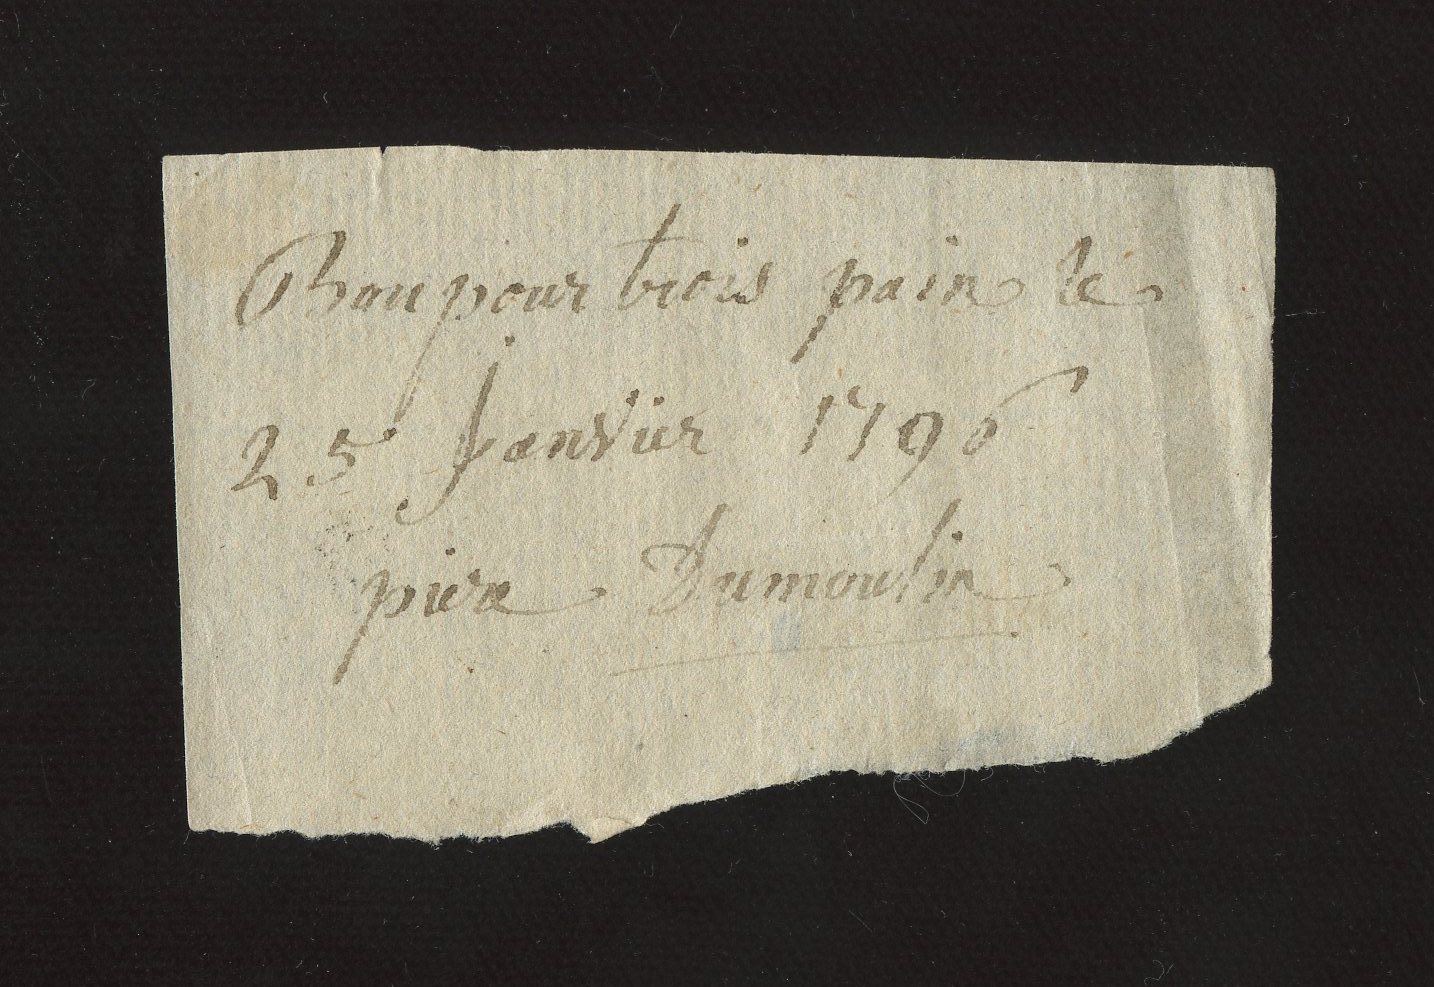 Bon pour trois pain le
25 Janvier 1796
piere Dumoulin